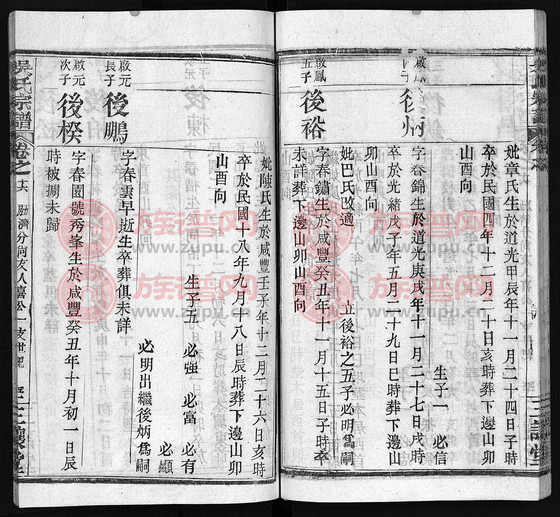 妣章氏生於道光甲辰年十一月二十四日子時
卒於民國四年十二月二十日亥時葬下邊山卯
山酉向
生子一 必信
啟鳳四子
後炳
字春錦生於道光庚戌年十一月二十七日戌時
卒於光緒戊子年五月二十九日巳時葬下邊山
卯山酉向
妣巴氏改適 立後裕之五子必明為嗣
啟鳳五子
後裕
字春鏞生於咸豐癸丑年十一月十五日子時卒
未詳葬下邊山卯山酉向
妣陳氏生於咸豐壬子年十二月二十六日亥時
卒於民國十八年九月十八辰時葬下邊山卯
山酉向
生子五 必強 必富 必有 必顯
必明出繼後炳為嗣
啟元長子
後鵬
字春雲早逝生卒葬俱未詳
啟元次子
後楑
字春園號秀峯生於咸豐癸丑年十月初一日辰
時被擄未歸
吳氏宗譜 卷之十六
族谱网
www.zupu.cn